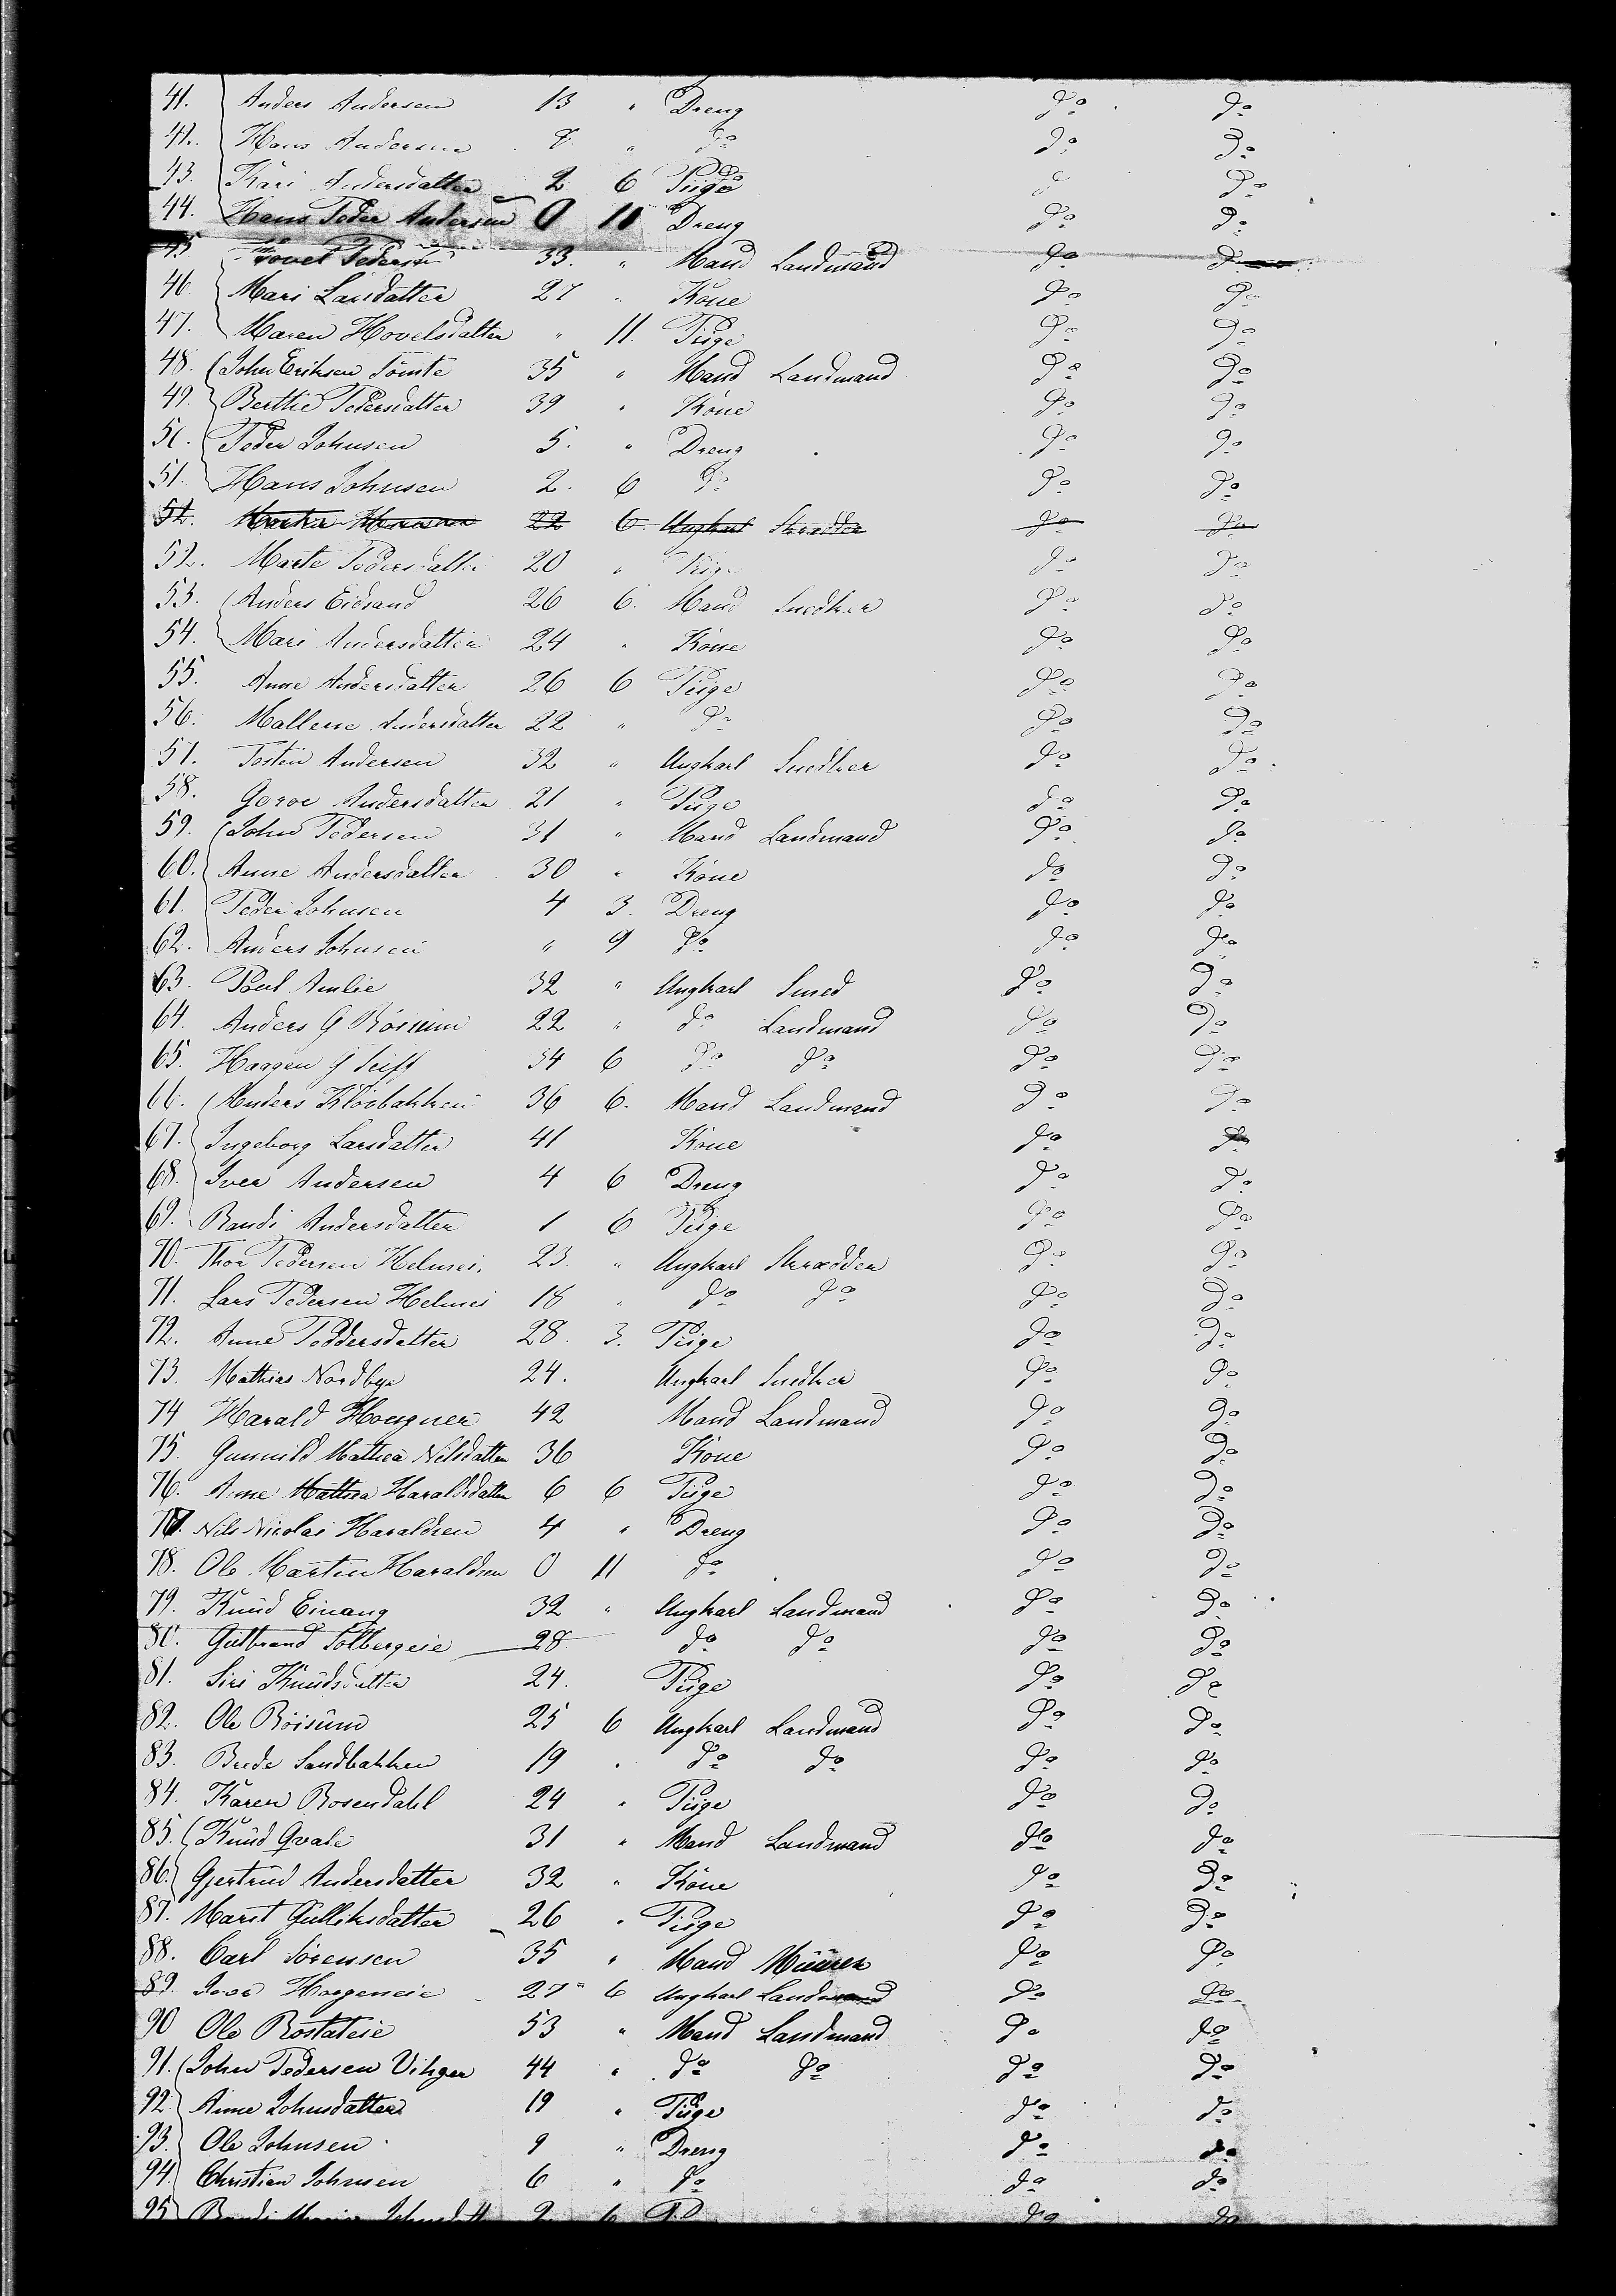 41. Anders Andersen 13 " Dreng do do
42. Hans Andersen 8 " do do do
43. Kari Andersdatter 2 6 Pige do
44. Hans Peder Andersen 0 11 Dreng do do
45 Hovel Pedersen 33. " Mand Landmand do
46 Mari Larsdatter 27 " Kone do do
47. Maren Hovelsdatter " 11. Pige do do
48. John Eriksen Tömte 35 " Mand Landmand do do
49. Berthe Pedersdatter 39 " Kone do do
50. Peder Johnsen 5. " Dreng do do
51. Hans Johnsen 2. 6 do do do
52. 22 6 Ungkarl Skrædder do do
52. Marte Pedersdatter 20 " Pige do do
53. Anders Eidsand 26 6. Mand Snedker do do
54. Mari Andersdatter 24 " Kone do do
55. Anne Andersdatter 26 6 Pige do do
56. Mallene Andersdatter 22 " do do do
57. Tosten Andersen 32 " Ungkarl Snedker do do
58. Goroe Andersdatter 21 " Pige do do
59. John Pedersen 31 " Mand Landmand do do
60. Anne Andersdatter 30 " Kone do do
61. Peder Johnsen 4 3. Dreng do do
62. Anders Johnsen " 9 do do do
63. Paul Amlie 32 " Ungkarl Smed do do
64. Anders G Röisum 22 " do Landmand do do
65. Haagen G 34 6 do do do do
66. Anders Klövbakken 36 6. Mand Landmand do do
67. Ingeborg Larsdatter 41 Kone do do
68. Iver Andersen 4 6 Dreng do do
69. Randi Andersdatter 1 6 Pige do do
70. Thor Pedersen Helmei 23. " Ungkarl Skrædder do do
71. Lars Pedersen Helmei 18 " do do do do
72. Anne Peddersdatter 28. 3. Pige do do
73. Mathias Nordbye 24. Ungkarl Snedker do do
74 Harald Hougner 42 Mand Landmand do do
75. Gunnild Mathea Nilsdatter 36 Kone do do
76. Anne Mathea Haraldsdatter 6 6 Pige do do
77. Nils Nicolai Haraldsen 4 " Dreng do do
78. Ole Martin Haraldsen 0 11 do do do
79. Knud Einang 32 " Ungkarl Landmand do do
80. Gulbrand Solbergeie 28 do do do do
81. Siri Knudsdatter 24. Pige do do
82. Ole Röisum 25 6 Ungkarl Landmand do do
83. Brede Sandbakken 19 " do do do do
84. Karen Rosendahl 24 " Pige do do
85. Knud Qvale 31 " Mand Landmand do do
86. Gjertrud Andersdatter 32 " Kone do do
87. Marit Gulliksdatter 26 " Pige do do
88. Carl Sörensen 35 " Mand Muurer do do
89. Iver Haugeneie 27 6 Ungkarl Landmand do do
90 Ole Rostateie 53 " Mand Landmand do do
91. John Pedersen Vihger 44 " do do do do
92. Anne Johnsdatter 19 " Pige do do
93. Ole Johnsen 9 " Dreng do do
94. Christian Johnsen 6 " do do do
95 2 6 do do